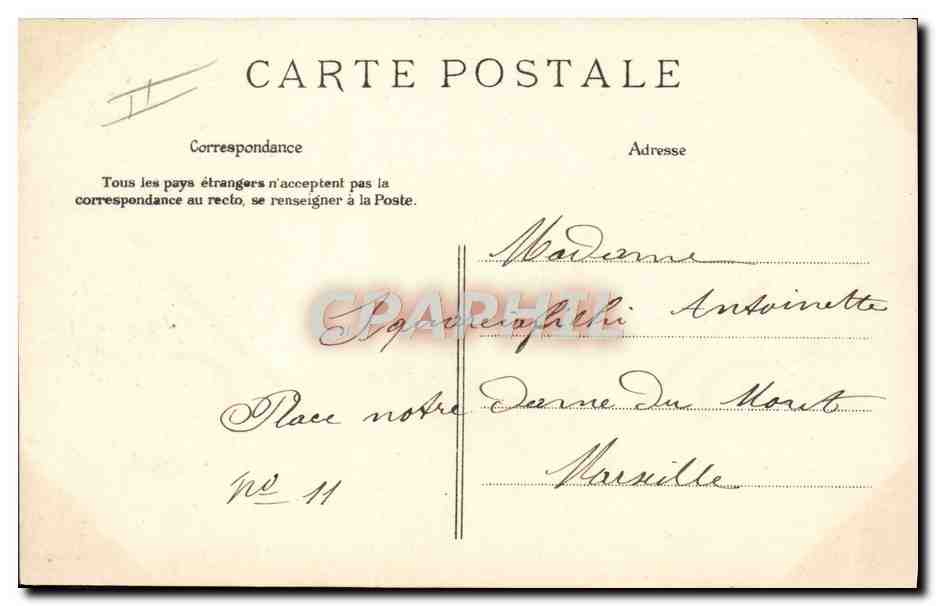 CARTE POSTALE
Correspondance
Adresse
Tous les pays étrangers n'acceptent pas la
correspondance au recto, se renseigner à la Poste.
Madame
Antoinette
Place notre dame du Mont
Marseille
No 11
CPAPHIL